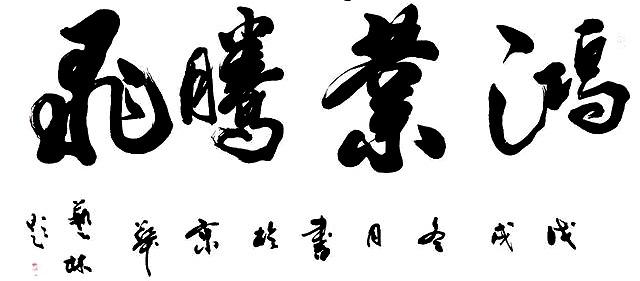 鴻業騰飛
戊戌冬月書於京華
藝林
題